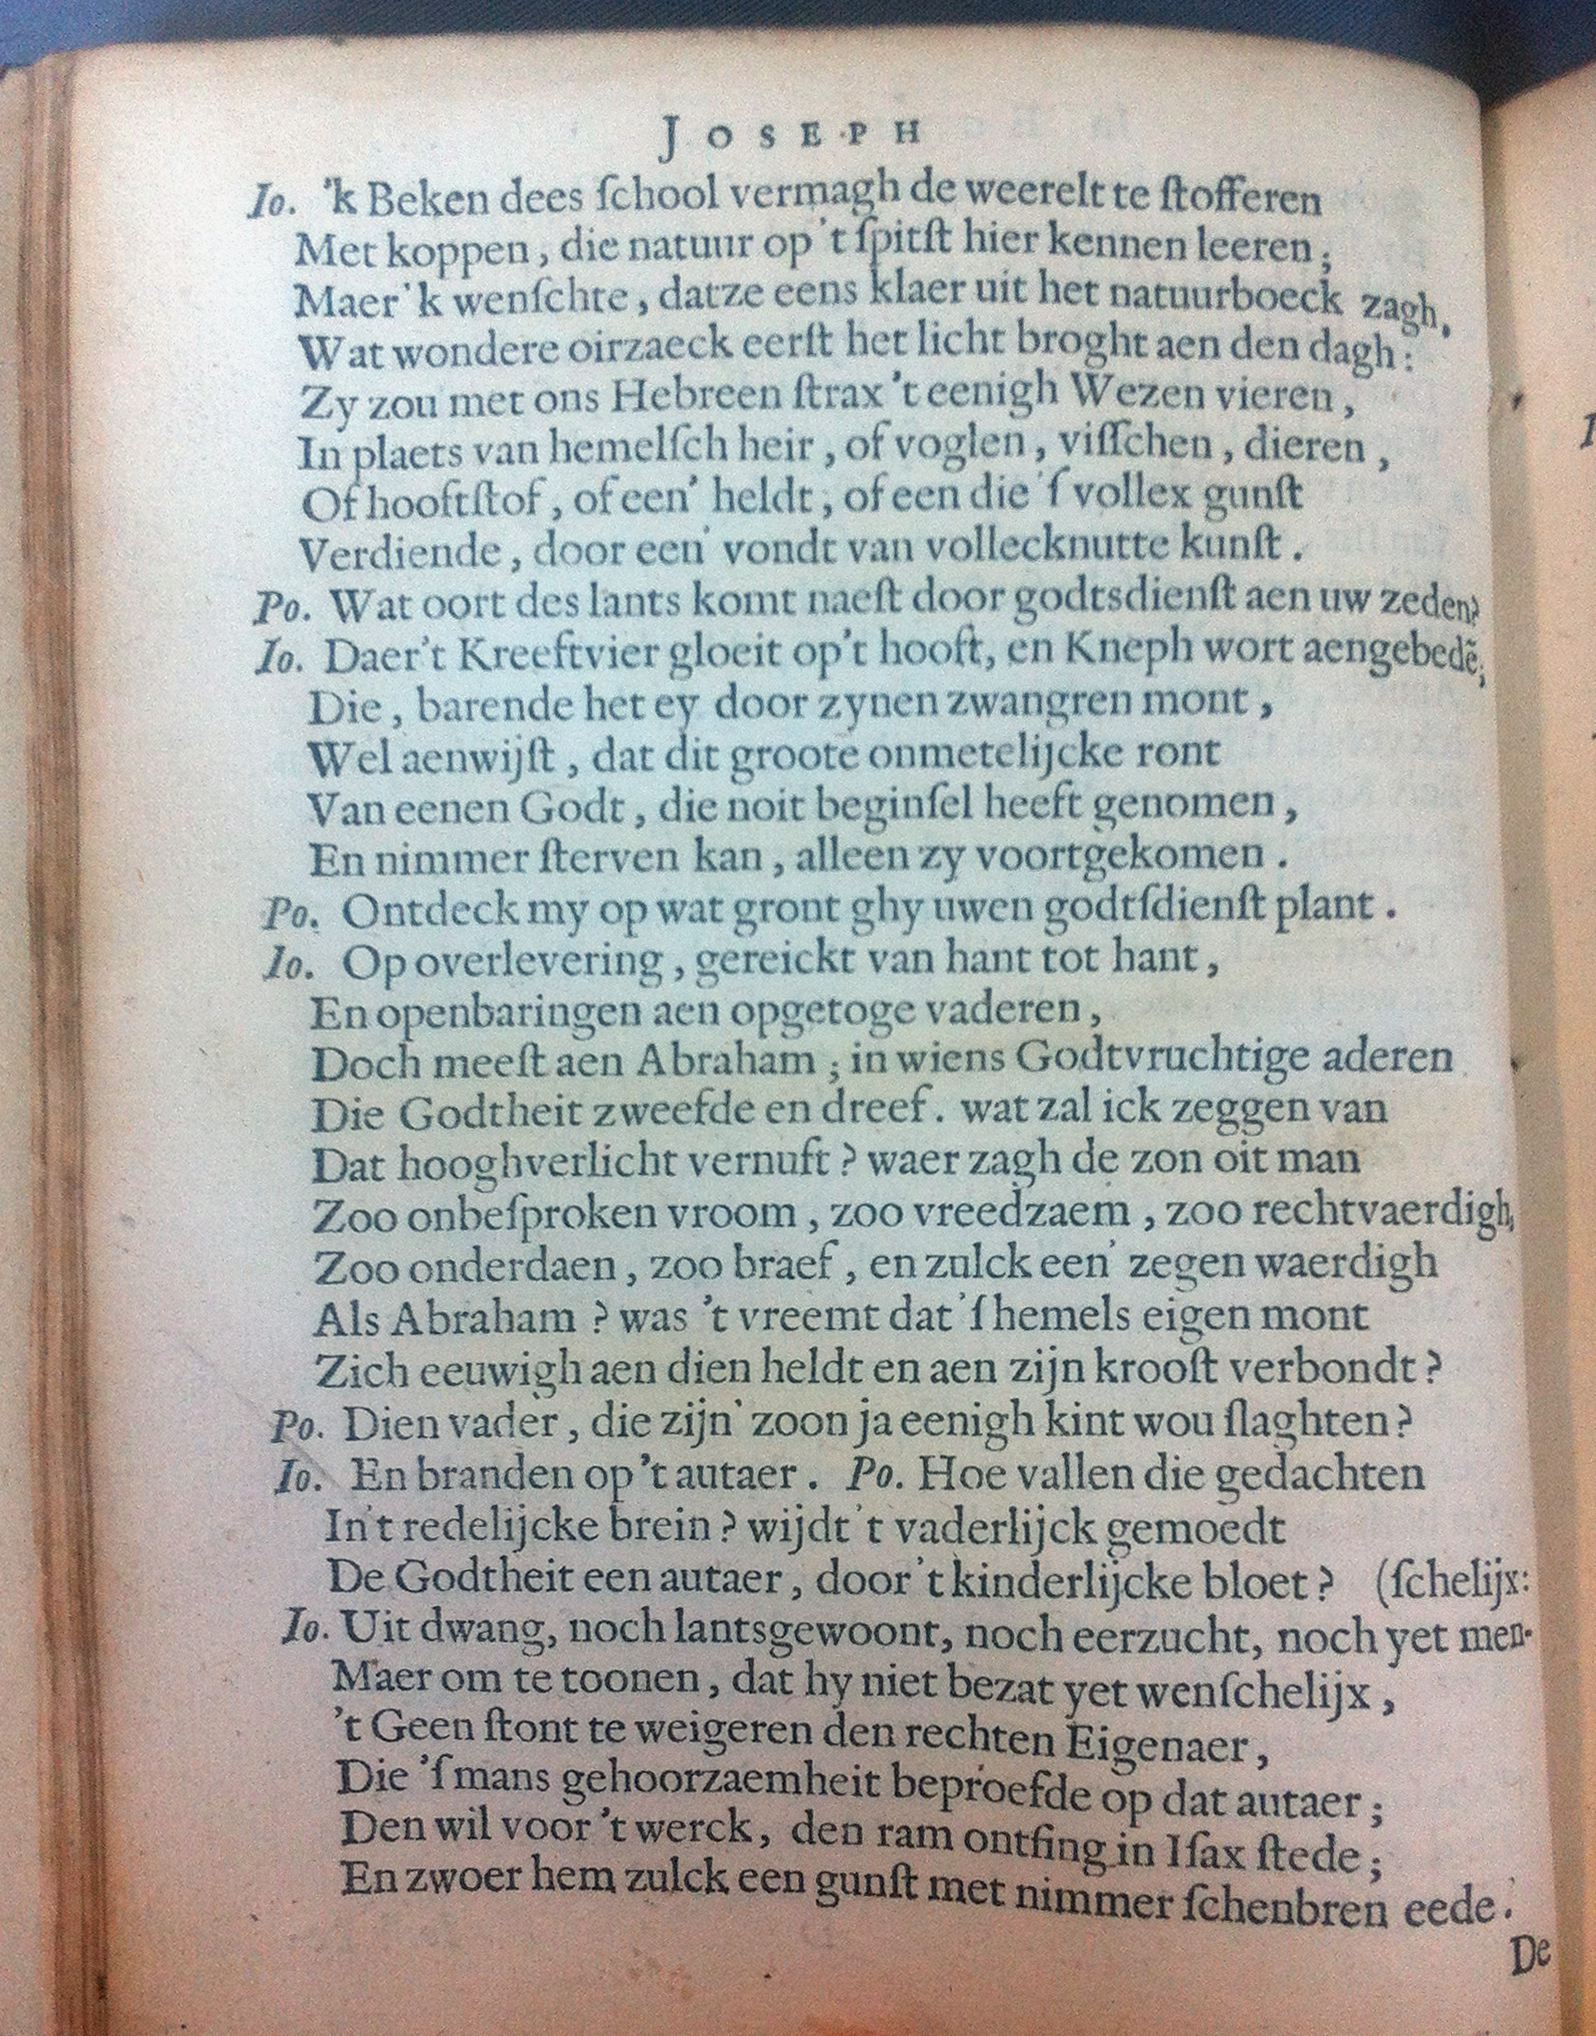 JOSEPH
Io. 'k Beken dees ſchool vermagh de weerelt te ſtofferen
Met koppen, die natuur op 't ſpitſt hier kennen leeren;
Maer 'k wenſchte, datze eens klaer uit het natuurboeck zagh,
Wat wondere oirzaeck eerſt het licht broght aen den dagh:
Zy zou met ons Hebreen ſtrax 't eenigh Wezen vieren,
In plaets van hemelſch heir, of voglen, viſſchen, dieren,
Of hooftſtof, of een' heldt, of een die 'ſ vollex gunſt
Verdiende, door een' vondt van vollecknutte kunſt.
Po. Wat oort des lants komt naeſt door godtsdienſt aen uw zeden?
Io. Daer 't Kreeftvier gloeit op 't hooft, en Kneph wort aengebedē;
Die, barende het ey door zynen zwangren mont,
Wel aenwijſt, dat dit groote onmetelijcke ront
Van eenen Godt, die noit beginſel heeft genomen,
En nimmer ſterven kan, alleen zy voortgekomen.
Po. Ontdeck my op wat gront ghy uwen godtſdienſt plant.
Io. Op overlevering, gereickt van hant tot hant,
En openbaringen aen opgetoge vaderen,
Doch meeſt aen Abraham; in wiens Godtvruchtige aderen
Die Godtheit zweefde en dreef. wat zal ick zeggen van
Dat hooghverlicht vernuft? waer zagh de zon oit man
Zoo onbeſproken vroom, zoo vreedzaem, zoo rechtvaerdigh,
Zoo onderdaen, zoo braef, en zulck een' zegen waerdigh
Als Abraham? was 't vreemt dat 'ſ hemels eigen mont
Zich eeuwigh aen dien heldt en aen zijn krooſt verbondt?
Po. Dien vader, die zijn' zoon ja eenigh kint wou ſlaghten?
Io. En branden op 't autaer. Po. Hoe vallen die gedachten
In 't redelijcke brein? wijdt 't vaderlijck gemoedt
De Godtheit een autaer, door 't kinderlijcke bloet? (ſchelijx:
Io. Uit dwang, noch lantsgewoont, noch eerzucht, noch yet men-
Maer om te toonen, dat hy niet bezat yet wenſchelijx,
't Geen ſtont te weigeren den rechten Eigenaer,
Die 'ſ mans gehoorzaemheit beproefde op dat autaer;
Den wil voor 't werck, den ram ontfing in Iſax ſtede;
En zwoer hem zulck een gunſt met nimmer ſchenbren eede.
De